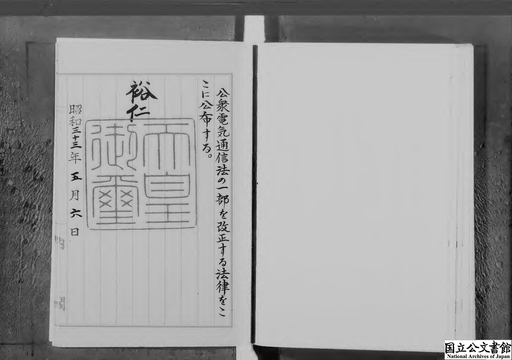 公衆電気通信法の一部を改正する法律をこ
こに公布する。
裕仁
天皇
御璽
昭和三十三年五月六日
国立公文書館
National Archives of Japan